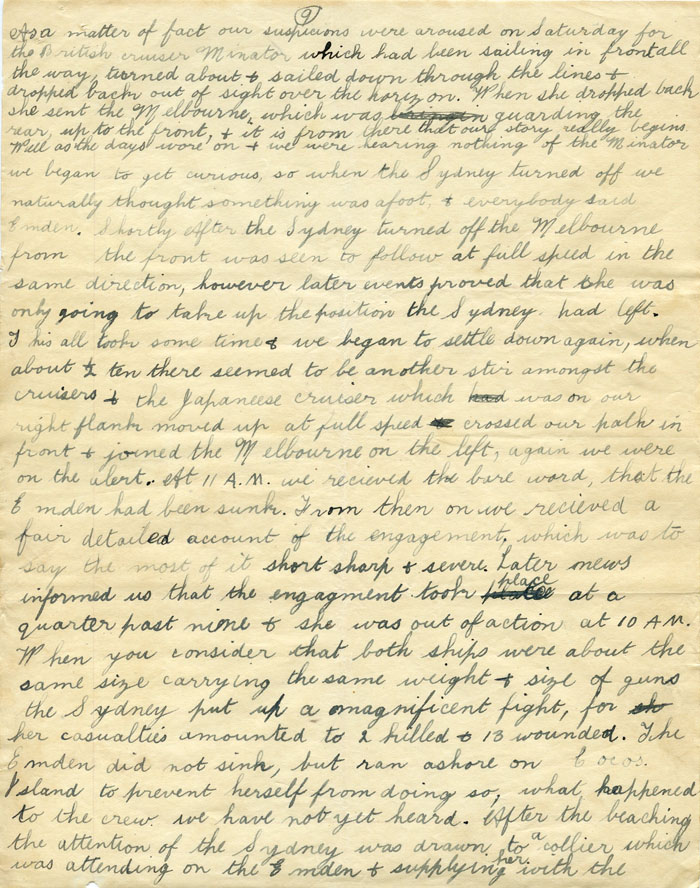 9
As a matter of fact our suspicions were aroused on Saturday for
the British cruiser Minator which had been sailing in front all
the way, turned about & sailed down through the lines &
dropped back out of sight over the horizon. When she dropped back
she sent the Melbourne, which was guarding the
rear, up to the front, & it is from there that our story really begins
Well as the days wore on & we were hearing nothing of the Minator
we began to get curious, so when the Sydney turned off we
naturally thought something was afoot, & everybody said
Emden. Shortly after the Sydney turned off the Melbourne
from the front was seen to follow at full speed in the
same direction, however later events proved that she was
only going to take up the position the Sydney had left.
This all took some time & we began to settle down again, when
about ½ ten there seemed to be another stir amongst the
cruisers & the Japaneese cruiser which had was on our
right flank moved up at full speed & crossed our path in
front & joined the Melbourne on the left, again we were
on the alert. At 11 A.M. we recieved the bare word, that the
Emden had been sunk. From then on we recieved a
fair detailed account of the engagement, which was to
say the most of it short sharp & severe. Later news
informed us that the engagment took place at a
quarter past nine & she was out of action at 10 AM.
When you consider that both ships were about the
same size carrying the same weight & size of guns
the Sydney put up a magnificent fight, for sh
her casualties amounted to 2 killed & 13 wounded. The
Emden did not sink, but ran ashore on Cocos.
Island to prevent herself from doing so, what happened
to the crew we have not yet heard. After the beaching
the attention of the Sydney was drawn to a collier which
was attending on the Emden & supplying her with the